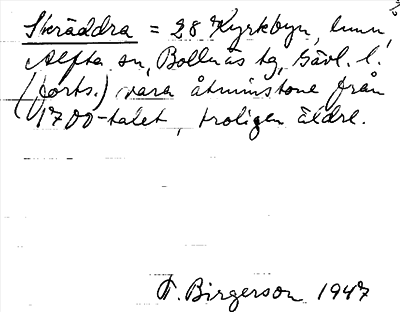 Skräddra = 28 Kyrkbyn, hmn, 2
Alfta sn, Bollnäs tg, Gävl. l.
(forts.) vara åtminstone från
1700-talet, troligen äldre.
T. Birgerson 1947